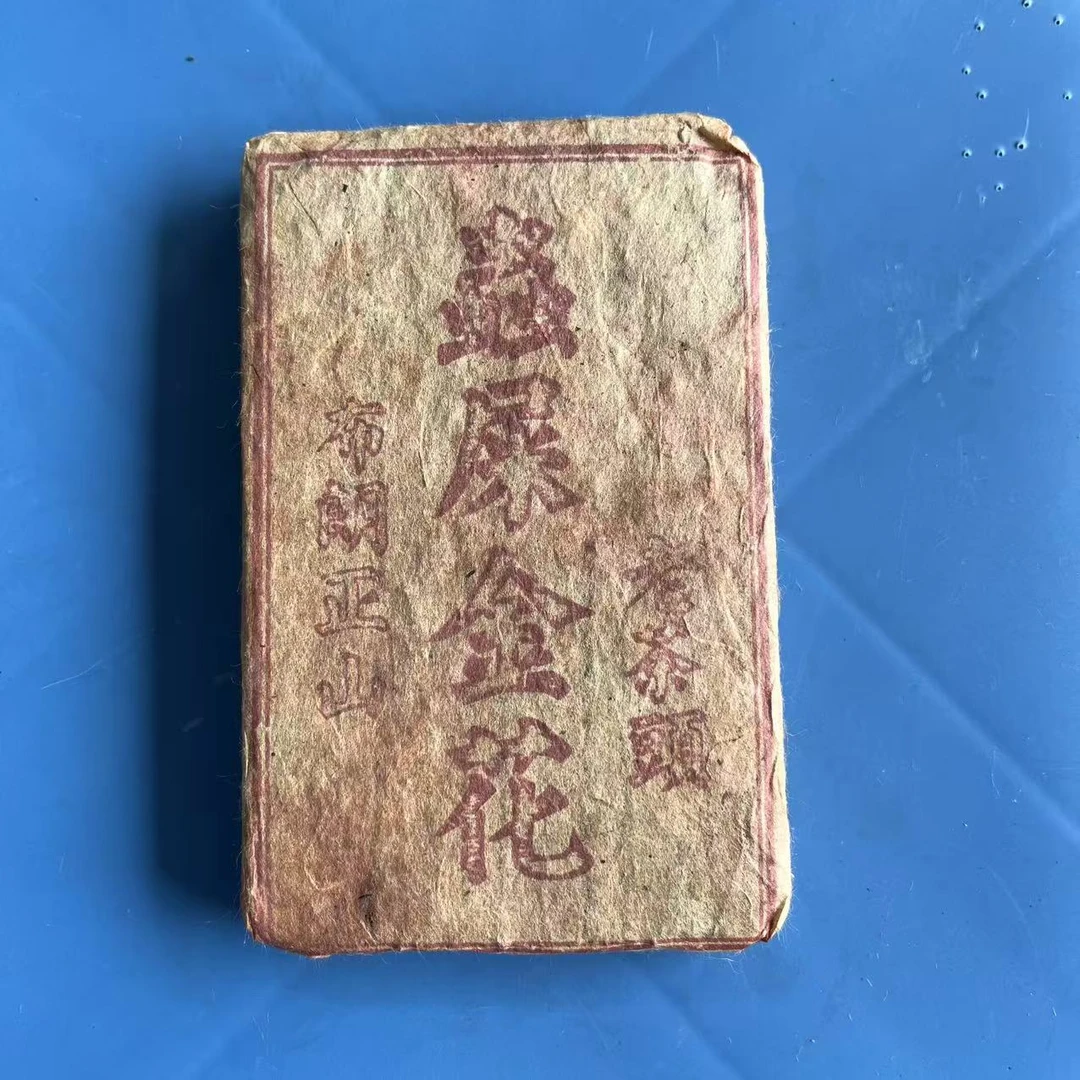 老茶頭
蟲屎金花
布朗正山